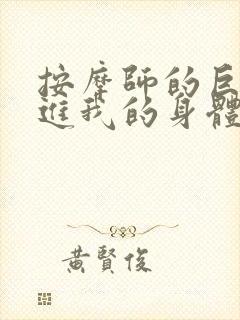 按摩師的巨
進我的身體
黃賢俊